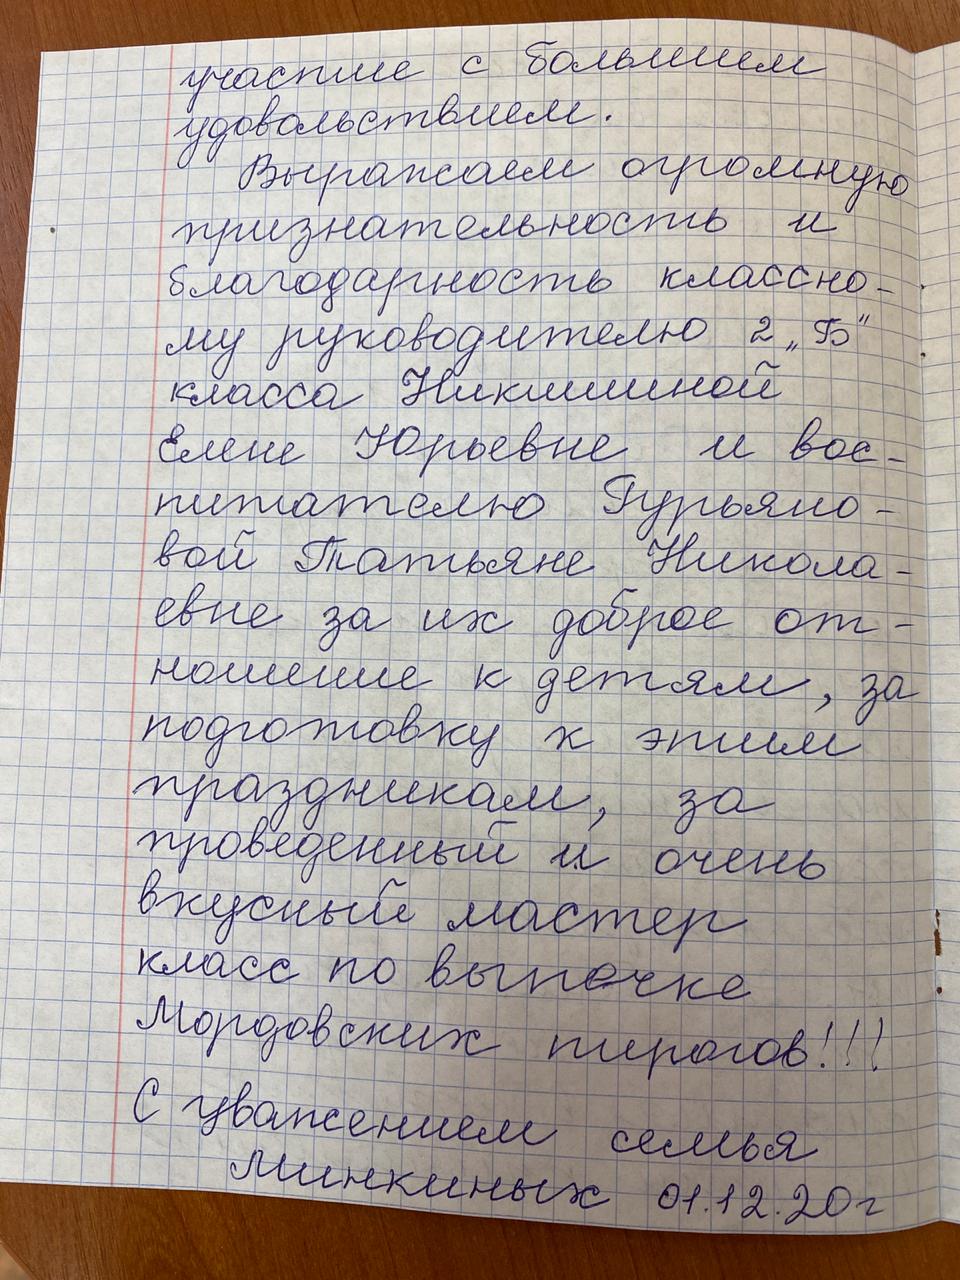 участие с большим
удовольствием.
Выражаем огромную
признательность и
благодарность классно-
му руководителю 2 „Б"
класса Никишиной
Елене Юрьевне и вос-
питателю Гурьяно-
вой Татьяне Никола-
евне за их доброе от-
ношение к детям, за
подготовку к этим
праздникам, за
проведенный и очень
вкусный мастер
класс по выпечке
Мордовских пирогов!!!
С уважением семья
Минкиных 01.12.20г